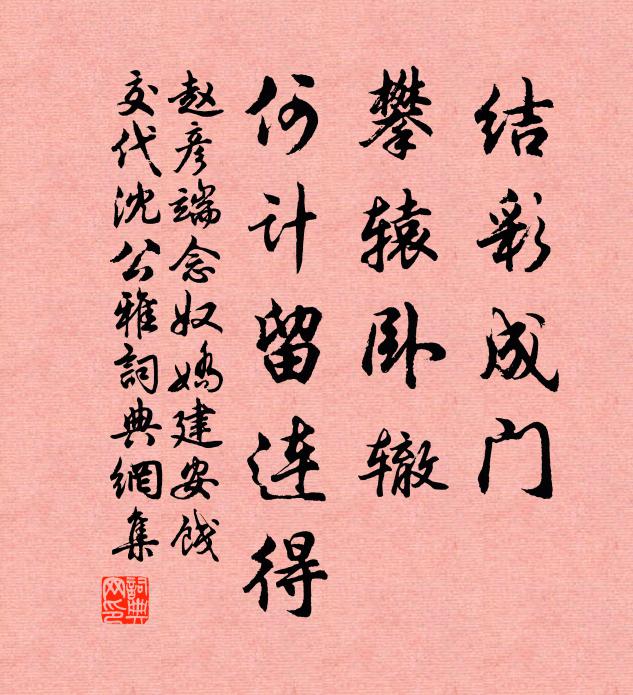 结彩成门
攀辕卧辙
何计留连得
赵彦端念奴娇建安饯
交代沈公雅詞典網集
詞典
网印